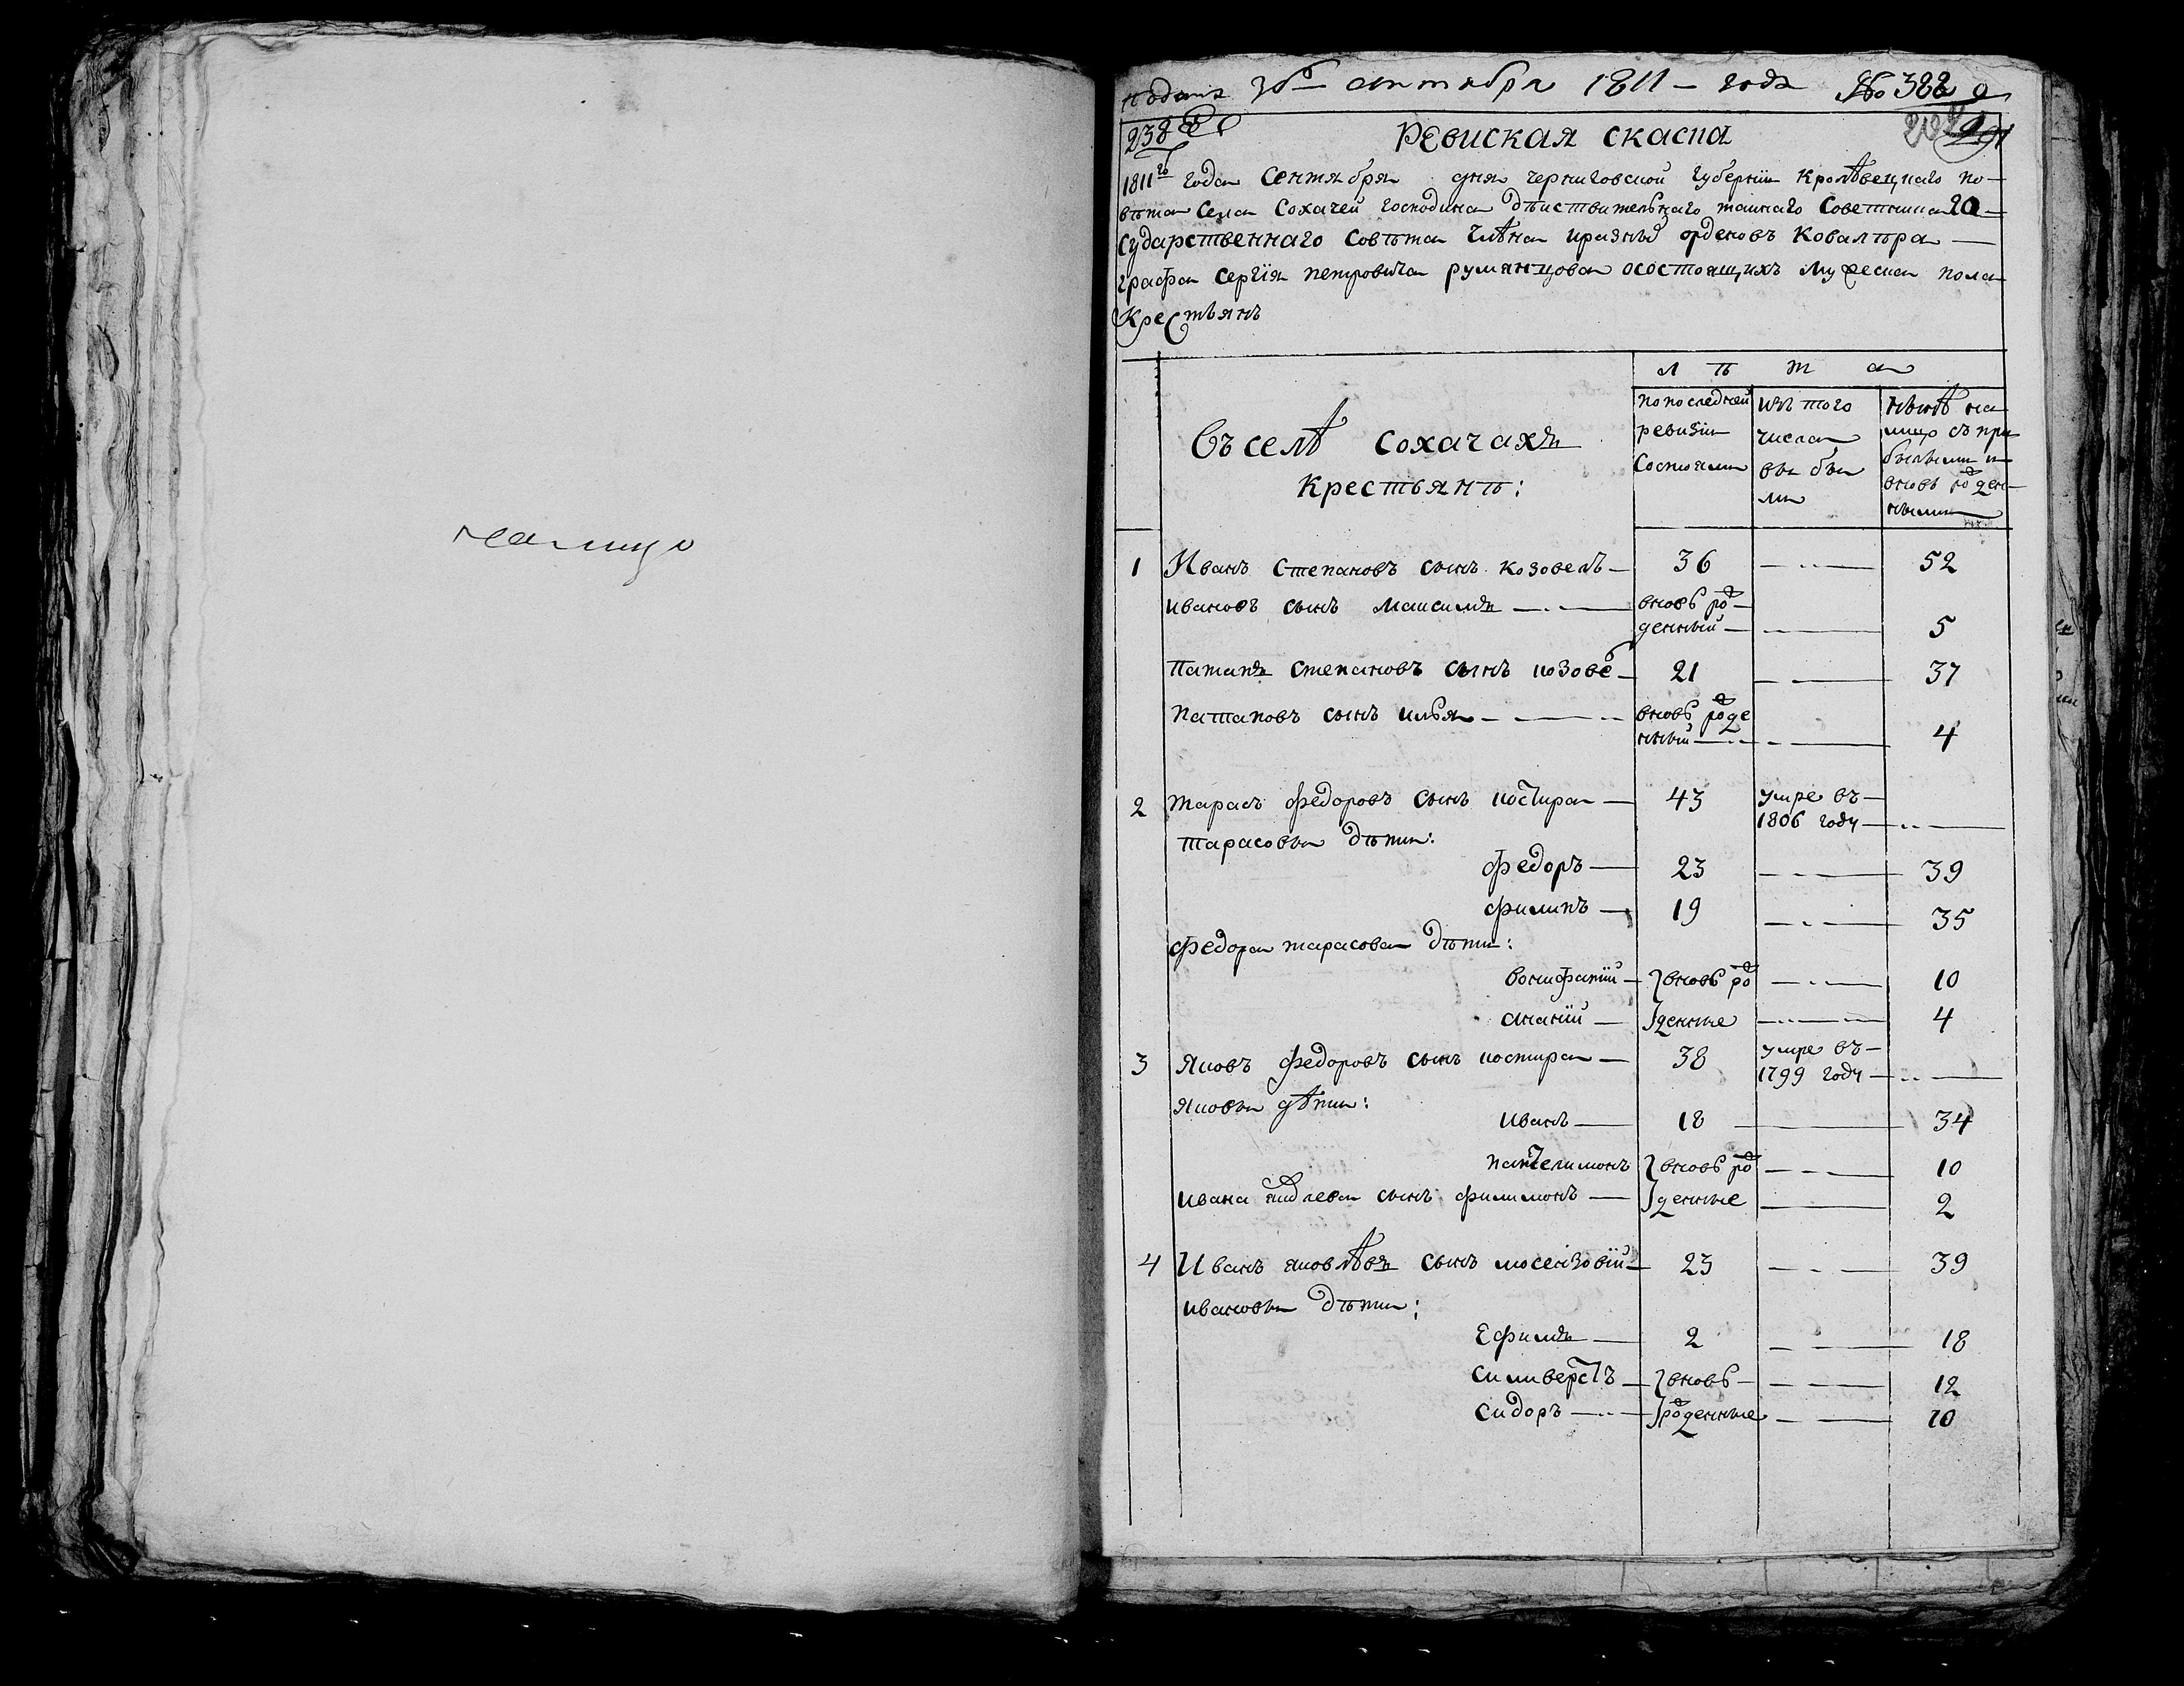 налицо
подана 30го октября 1811 - года № 388
238
Ревиская скаска
1811го года Сентября дня черниговской губернии кролѣвецкаго по-
вѣта села Сохачей господина дѣиствительнаго таинаго Советника го-
сударственнаго совѣта члѣна иразнъ орденовъ Ковалѣра
графа сергія петровича румянцова осостоящихъ мужеска пола
Крестьянъ
лѣта
Въ селѣ Сохачахъ
Крестьянъ:
попоследней
ревизіи
Состояли
изъ того
числа
выбы
ли
нынѣ на
лицо съ при
былыми и
вновь рожден-
ными
1 Иванъ Степановъ сынъ козовелъ 36 52
ивановъ сынъ максимъ вновь рож-
денный 5
Патапъ степановъ сынъ козове 21 37
Патаповъ сынъ илья вновь рожде
нный 4
2 тарасъ федоровъ сынъ костира 43 умре въ
1806 году
тарасовы дѣти:
федоръ 23 39
филипъ 19 35
федора тарасова дѣти:
вонифатій вновь рож 10
ананій денные 4
3 Яковъ федоровъ сынъ костира 38 умре въ
1799 году
яковы дѣти:
иванъ 18 34
пантелимонъ вновь рож 10
ивана яковлева сынъ филимонъ денные 2
4 Иванъ яковлѣвъ сынъ мосензовій 23 39
ивановы дѣти:
Ефимъ 2 18
силиверстъ вновь 12
сидоръ рожденные 10